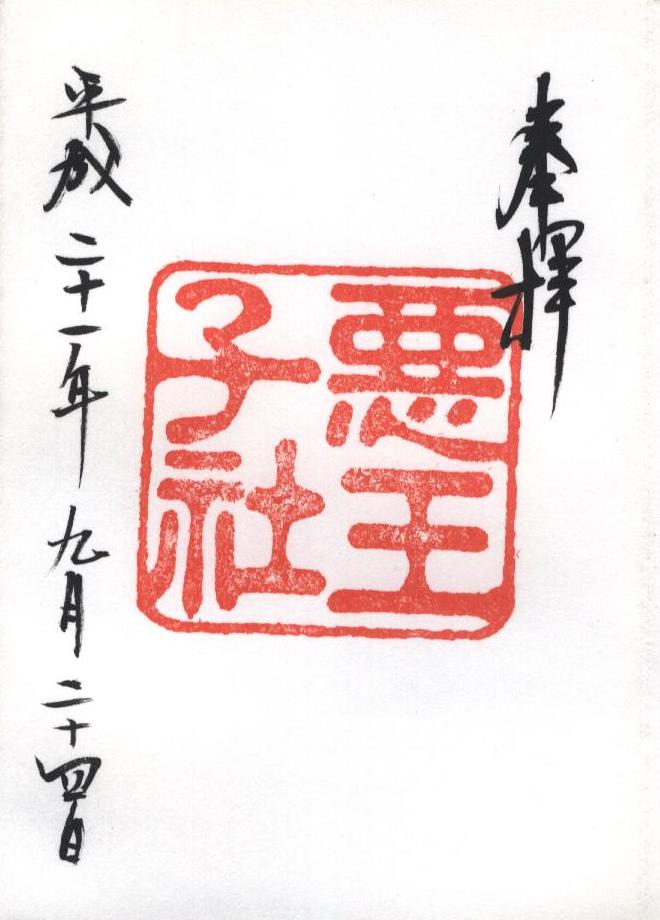 奉拝
悪王
子社
平成二十一年九月二十四日